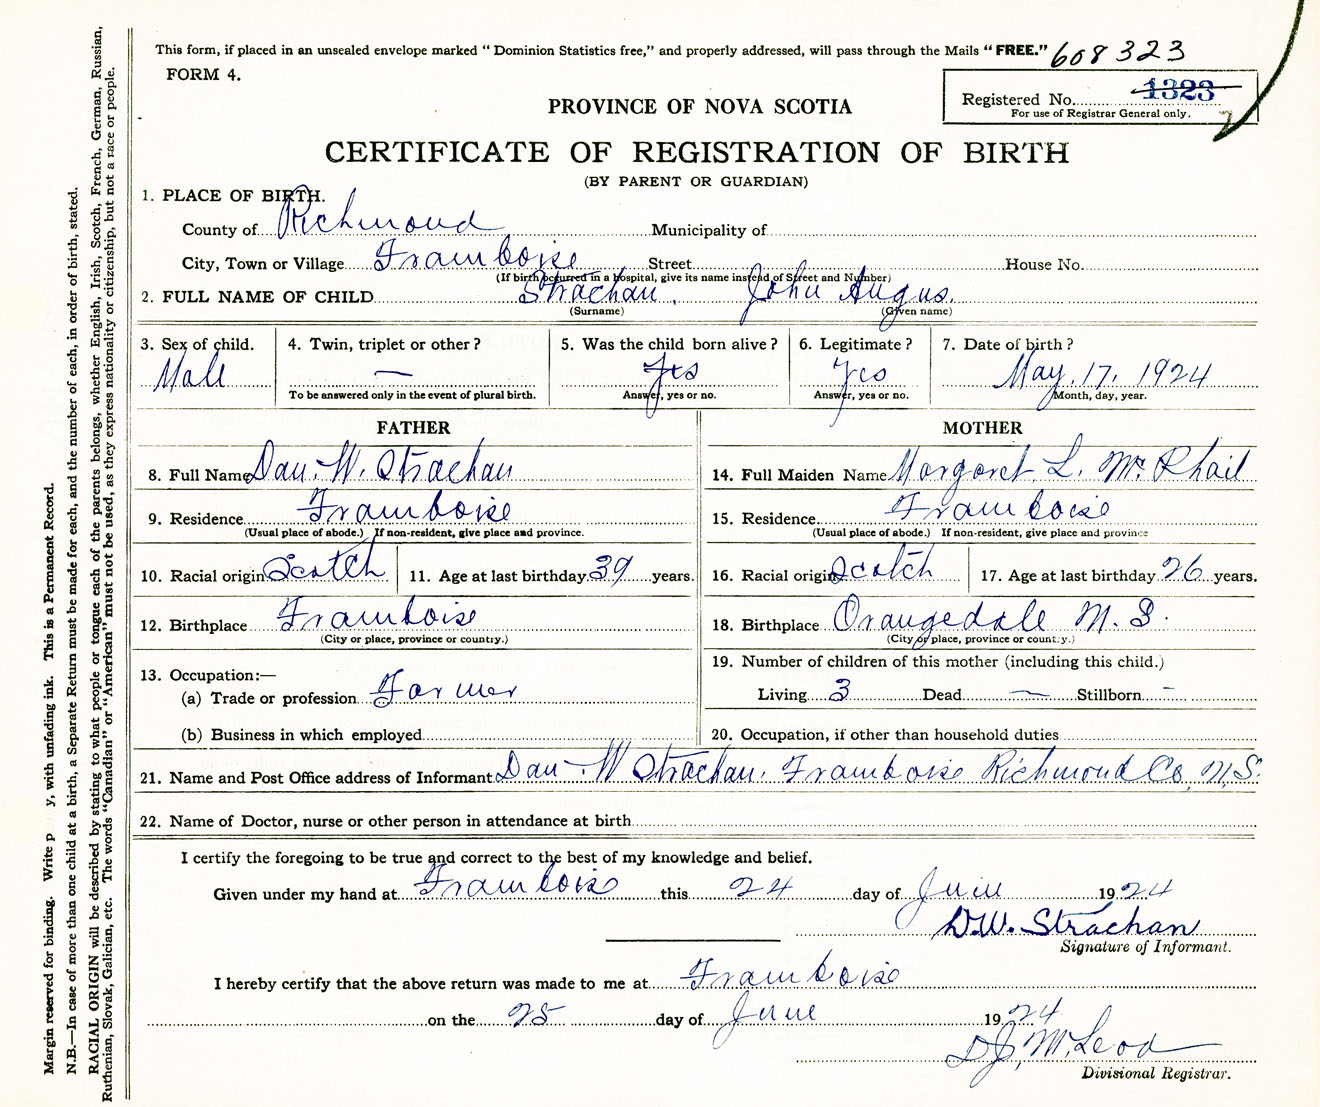 This form, if placed in an unsealed envelope marked "Dominion Statistics free," and properly addressed, will pass through the Mails "FREE." 608323
FORM 4.
Registered No. 1323
For use of Registrar General only.
PROVINCE OF NOVA SCOTIA
CERTIFICATE OF REGISTRATION OF BIRTH
(BY PARENT OR GUARDIAN)
1. PLACE OF BIRTH.
County of Richmond Municipality of
City, Town or Village Framboise Street House No.
(If birth occurred in a hospital, give its name instead of Street and Number)
2. FULL NAME OF CHILD Strachan, John Angus.
(Surname) (Given name)
3. Sex of child. 4. Twin, triplet or other? 5. Was the child born alive? 6. Legitimate? 7. Date of birth?
Male — Yes Yes May. 17. 1924
To be answered only in the event of plural birth. Answer, yes or no. Answer, yes or no. Month, day, year.
FATHER MOTHER
8. Full Name Dan. W. Strachan 14. Full Maiden Name Margaret L. Mc Phail
9. Residence Framboise 15. Residence Framboise
(Usual place of abode.) If non-resident, give place and province. (Usual place of abode.) If non-resident, give place and province
10. Racial origin Scotch 11. Age at last birthday 39 years. 16. Racial origin Scotch 17. Age at last birthday 26 years.
12. Birthplace Framboise 18. Birthplace Orangedale N. S.
(City or place, province or country.) (City or place, province or country.)
13. Occupation:— 19. Number of children of this mother (including this child.)
(a) Trade or profession Farmer Living 3 Dead — Stillborn -
(b) Business in which employed 20. Occupation, if other than household duties
21. Name and Post Office address of Informant Dan. W Strachan. Framboise Richmond Co, N.S.
22. Name of Doctor, nurse or other person in attendance at birth
I certify the foregoing to be true and correct to the best of my knowledge and belief.
Given under my hand at Framboise this 24 day of June 1924
D.W. Strachan
Signature of Informant.
I hereby certify that the above return was made to me at Framboise
on the 25 day of June 1924
D J, McLeod
Divisional Registrar.
Margin reserved for binding. Write p y, with unfading ink. This is a Permanent Record.
N.B.—In case of more than one child at a birth, a Separate Return must be made for each, and the number of each, in order of birth, stated.
RACIAL ORIGIN will be described by stating to what people or tongue each of the parents belongs, whether English, Irish, Scotch, French, German, Russian,
Ruthenian, Slovak, Galician, etc. The words "Canadian" or "American" must not be used, as they express nationality or citizenship, but not a race or people.